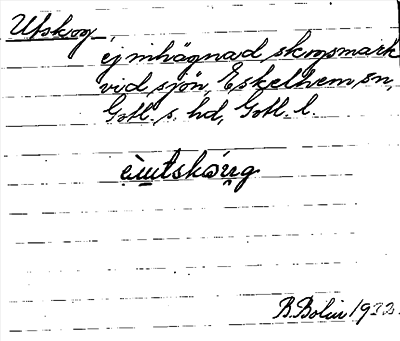 Utskog,
ej inhägnad skogsmark
vid sjön, Eskelhem sn,
Gotl. s. hd, Gotl. l.
B. Bolin 1932.